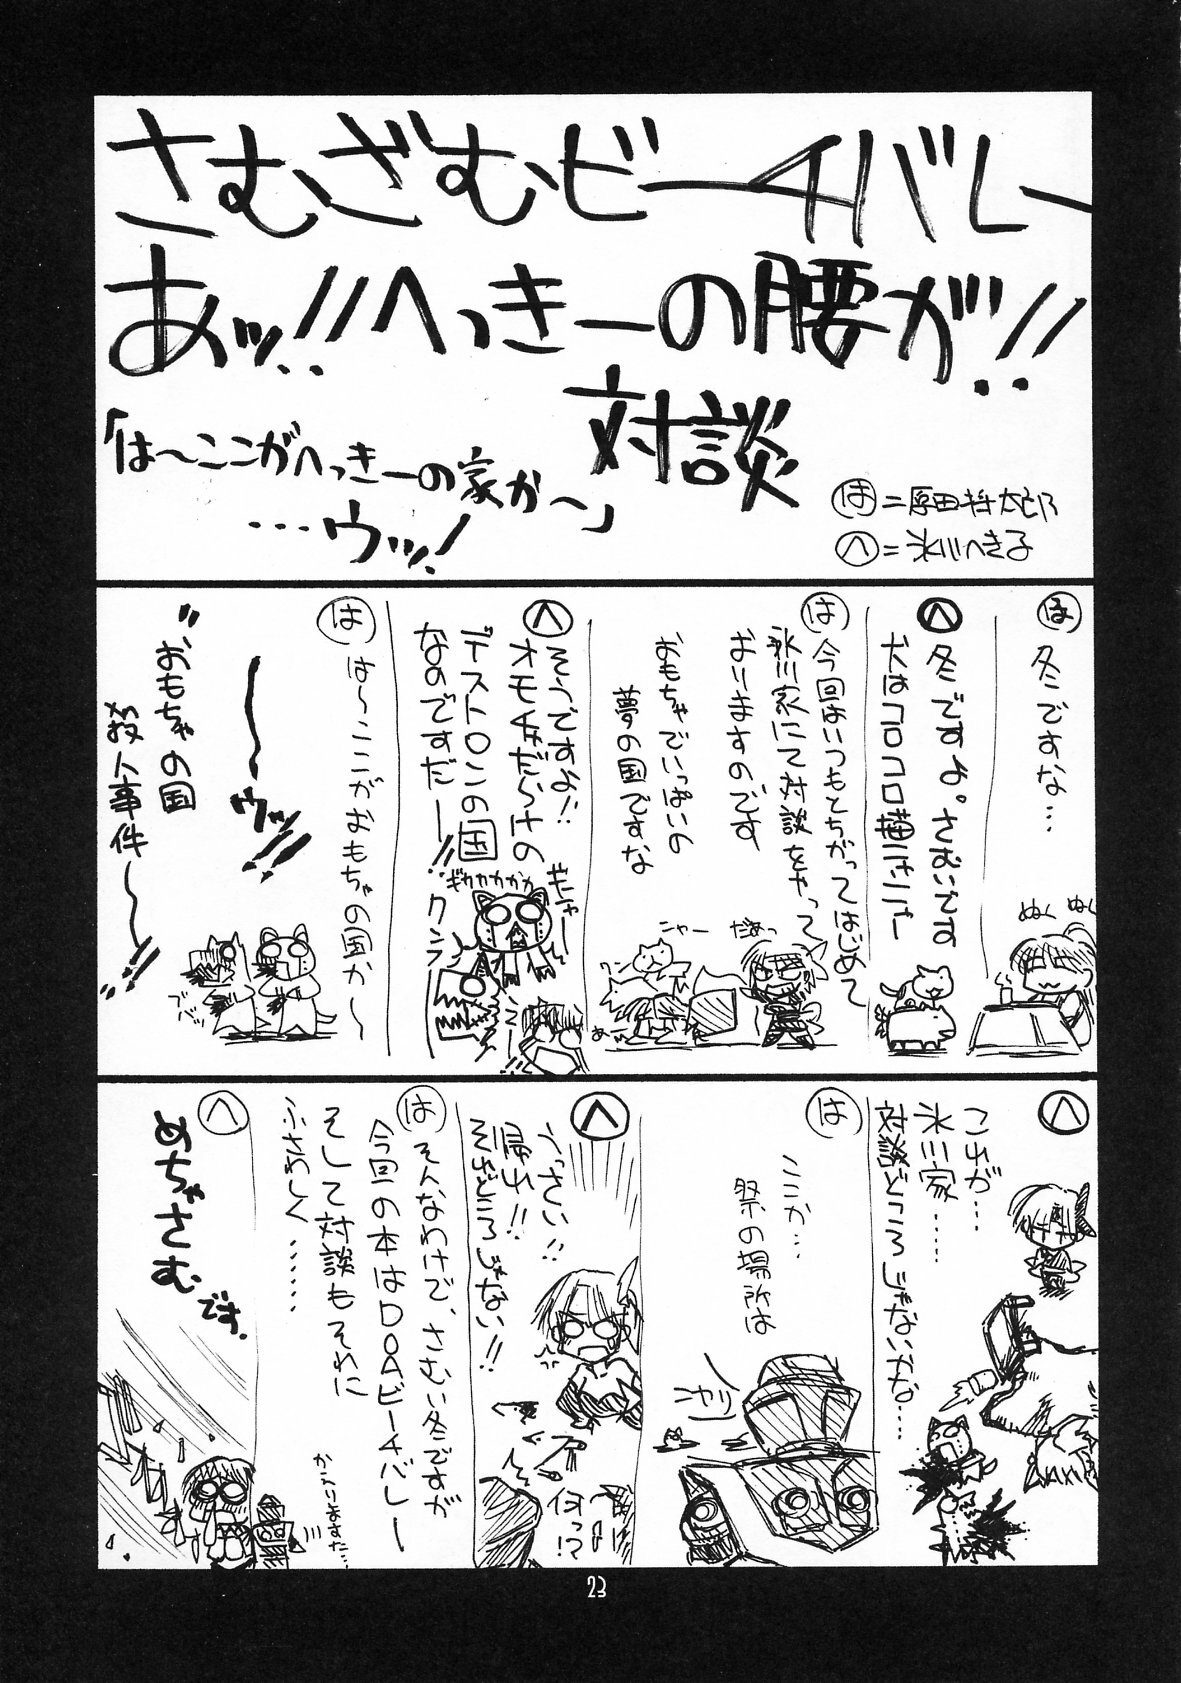 さむざむビーチバレー
あッ!!へっきーの腰が!!
対談
「は〜ここがへっきーの家か〜」
…ウッ!
は=原田将太郎
へ=氷川へき子
は 冬ですな…
ぬくぬく
へ 冬ですよ。さむいです
犬はコロコロ猫ニャニャ
は 今回はいつもとちがってはじめて
氷川家にて対談をやって
おりますのです
おもちゃでいっぱいの
夢の国ですな
だぁっ
ニャー
ワン
へ そうですよ!!
オモチャだらけの
デストロンの国
なのですだー!!
ギニャー
ギカカカカカ
は は〜ここがおもちゃの国か〜
〜ウッ!!
"おもちゃの国
殺人事件〜!!
へ これが…
氷川家……
対談どころじゃないな…
は ここか…
祭の場所は
へ うっさい!!
帰れ!!
それどころじゃない!!
何っ!?
は そんなわけで、さむい冬ですが
今回の本はDOAビーチバレー
そして対談もそれに
ふさわしく……
かぶりますた…
へ めちゃさむです。
23